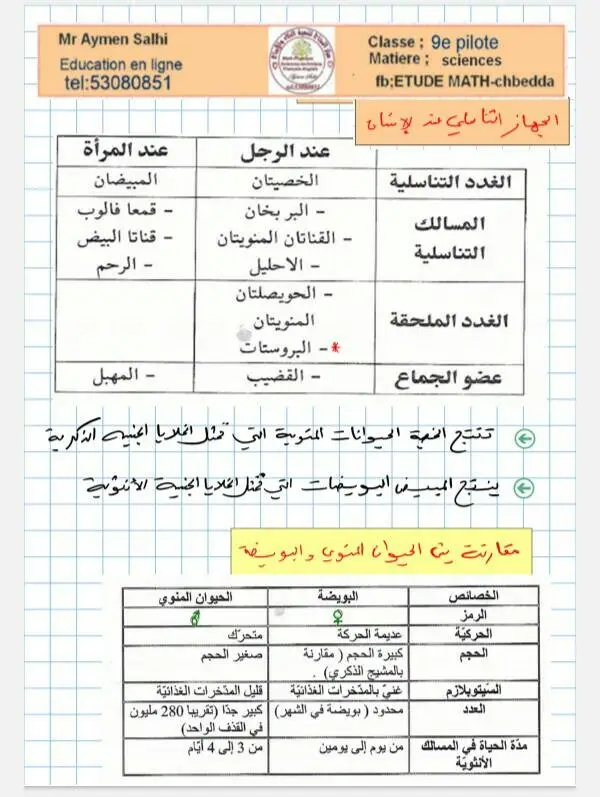 Mr Aymen Salhi
Education en ligne
tel:53080851
Classe ; 9e pilote
Matiere ; sciences
fb;ETUDE MATH-chbedda
الجهاز التناسلي عند الإنسان
عند الرجل عند المرأة
الغدد التناسلية الخصيتان المبيضان
المسالك التناسلية – البربخان – قمعا فالوب
– القناتان المنويتان – قناتا البيض
– الاحليل – الرحم
الغدد الملحقة – الحويصلتان
المنويتان
*– البروستات
عضو الجماع – القضيب – المهبل
تنتج الخصية الحيوانات المنوية التي تمثل الخلايا الجنسية الذكرية
ينتج المبيض البويضات التي تمثل الخلايا الجنسية الأنثوية
مقارنة بين الحيوان المنوي والبويضة
الخصائص البويضة الحيوان المنوي
الرمز ♀ ♂
الحركيّة عديمة الحركة متحرّك
الحجم كبيرة الحجم ( مقارنة صغير الحجم
بالمشيج الذكري) .
السّيتوبلازم غنيّ بالمدّخرات الغذائيّة قليل المدّخرات الغذائيّة
العدد محدود ( بويضة في الشهر) كبير جدّا (تقريبا 280 مليون
في القذف الواحد)
مدّة الحياة في المسالك من يوم إلى يومين من 3 إلى 4 أيّام
الأنثويّة